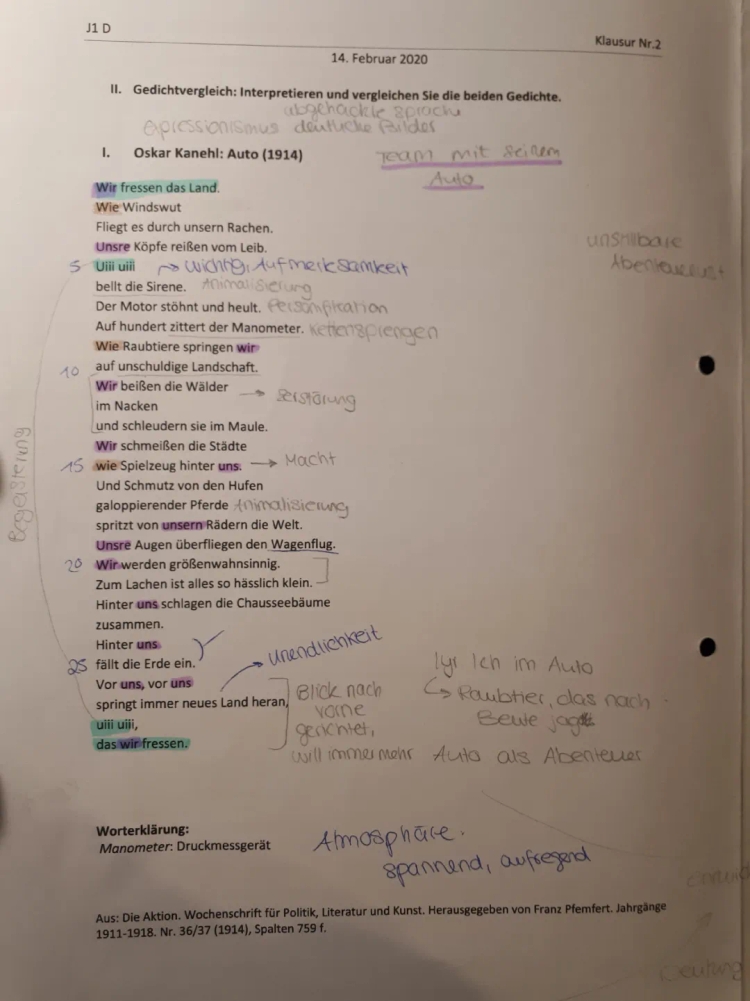 J1 D
Klausur Nr.2
14. Februar 2020
II. Gedichtvergleich: Interpretieren und vergleichen Sie die beiden Gedichte.
abgehackte Sprache
Epressionismus deutliche Bilder
I. Oskar Kanehl: Auto (1914)
Team mit seinem
Auto
Wir fressen das Land.
Wie Windswut
Fliegt es durch unsern Rachen.
Unsre Köpfe reißen vom Leib.
unstillbare
Abenteuerlust
5 Uiii uiii → wichtig, Aufmerksamkeit
bellt die Sirene. Animalisierung
Der Motor stöhnt und heult. Personifikation
Auf hundert zittert der Manometer. Kettensprengen
Wie Raubtiere springen wir
10 auf unschuldige Landschaft.
Wir beißen die Wälder
→ Zerstörung
im Nacken
und schleudern sie im Maule.
Wir schmeißen die Städte
15 wie Spielzeug hinter uns. → Macht
Und Schmutz von den Hufen
galoppierender Pferde Animalisierung
spritzt von unsern Rädern die Welt.
Unsre Augen überfliegen den Wagenflug.
20 Wir werden größenwahnsinnig.
Zum Lachen ist alles so hässlich klein.
Hinter uns schlagen die Chausseebäume
zusammen.
Hinter uns
25 fällt die Erde ein.
→ Unendlichkeit
Vor uns, vor uns
springt immer neues Land heran,
uiii uiii,
das wir fressen.
Begeisterung
Blick nach
vorne
gerichtet,
will immer mehr
lyr Ich im Auto
↳ Raubtier, das nach
Beute jagt
Auto als Abenteuer
Worterklärung:
Manometer: Druckmessgerät
Atmosphäre.
spannend, aufregend
Aus: Die Aktion. Wochenschrift für Politik, Literatur und Kunst. Herausgegeben von Franz Pfemfert. Jahrgänge
1911-1918. Nr. 36/37 (1914), Spalten 759 f.
Deutung